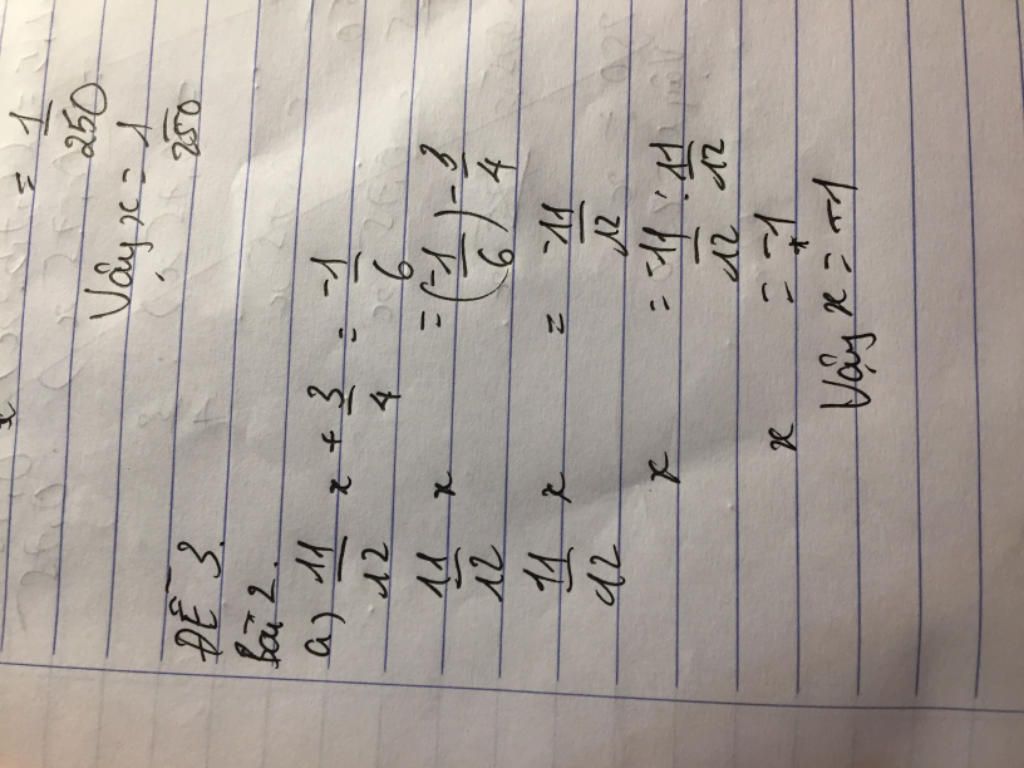 = 1/250
Vậy x = 1/250
ĐỀ 3.
Bài 2.
a) 11/12 x + 3/4 = -1/6
11/12 x = (-1/6) - 3/4
11/12 x = -11/12
x = -11/12 : 11/12
x = -1
Vậy x = -1